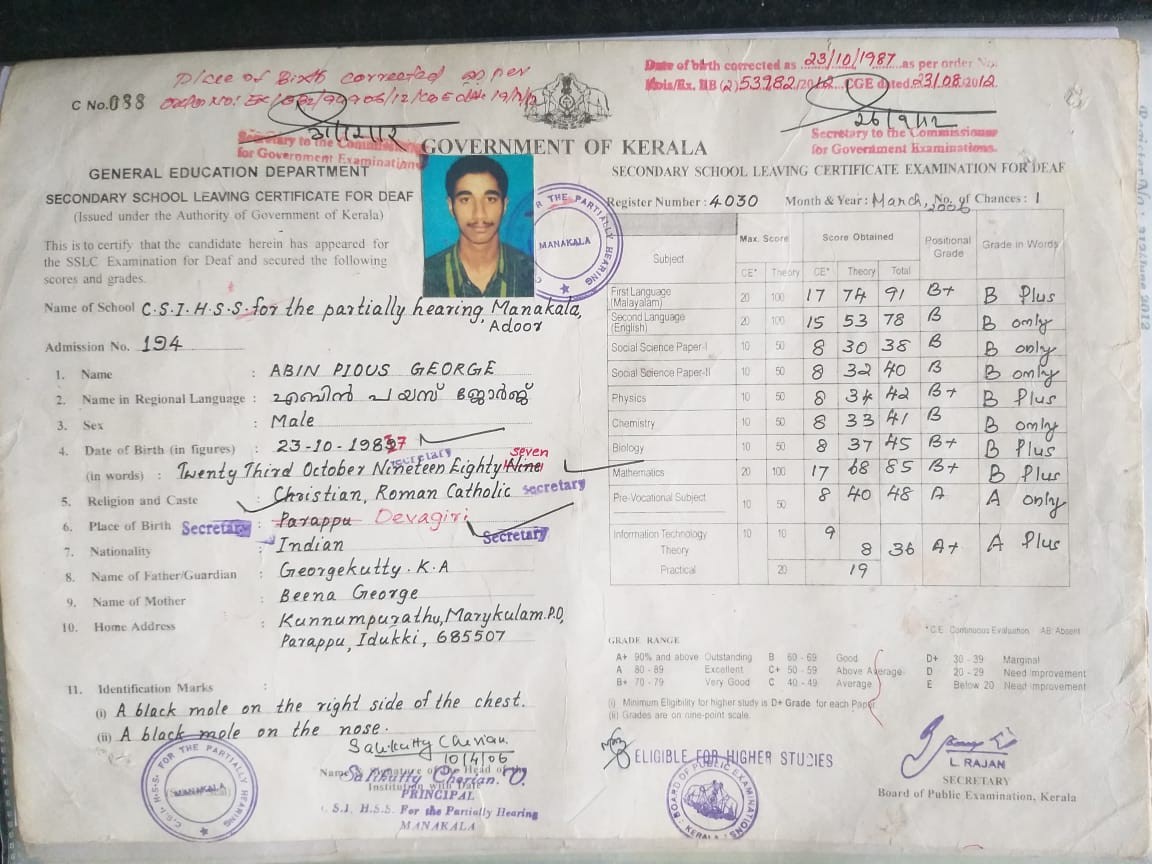 Place of Birth corrected as per
C No.088
Date of Birth corrected as 23/10/1987 as per order No.
53982/2012 CGE dated 23/08/2012
31/12/12
26/9/12
Secretary to the Commissioner
for Government Examinations
Secretary to the Commissioner
for Government Examinations.
GOVERNMENT OF KERALA
GENERAL EDUCATION DEPARTMENT
SECONDARY SCHOOL LEAVING CERTIFICATE FOR DEAF
(Issued under the Authority of Government of Kerala)
This is to certify that the candidate herein has appeared for
the SSLC Examination for Deaf and secured the following
scores and grades.
Name of School C.S.I.H.S.S. for the partially hearing, Manakala,
Adoor
Admission No. 194
1. Name : ABIN PIOUS GEORGE
2. Name in Regional Language : എബിൻ പയസ് ജോർജ്
3. Sex : Male
4. Date of Birth (in figures) : 23-10-1987
secretary
seven
(in words) : Twenty Third October Nineteen Eighty Nine
5. Religion and Caste : Christian, Roman Catholic secretary
6. Place of Birth Secretary : Parappu Devagiri
Secretary
7. Nationality : Indian
8. Name of Father/Guardian : Georgekutty. K.A
9. Name of Mother : Beena George
10. Home Address : Kunnumpurathu, Marykulam.P.O,
Parappu, Idukki, 685507
11. Identification Marks :
(i) A black mole on the right side of the chest.
(ii) A black mole on the nose.
Salikutty Cherian
10/4/06
Name & Signature of the Head of the
Institution with Date
Salikutty Cherian. O.
PRINCIPAL
C.S.I. H.S.S. For the Partially Hearing
MANAKALA
C.S.I. H.S.S. FOR THE PARTIALLY HEARING
MANAKALA
FOR THE PARTIALLY HEARING
MANAKALA
SECONDARY SCHOOL LEAVING CERTIFICATE EXAMINATION FOR DEAF
Register Number : 4030 Month & Year : March, 2006 No. of Chances : 1
Subject Max. Score Score Obtained Positional Grade Grade in Words
CE* Theory CE* Theory Total
First Language (Malayalam) 20 100 17 74 91 B+ B Plus
Second Language (English) 20 100 15 53 78 B B only
Social Science Paper-I 10 50 8 30 38 B B only
Social Science Paper-II 10 50 8 32 40 B B only
Physics 10 50 8 34 42 B+ B Plus
Chemistry 10 50 8 33 41 B B only
Biology 10 50 8 37 45 B+ B Plus
Mathematics 20 100 17 68 85 B+ B Plus
Pre-Vocational Subject 10 50 8 40 48 A A only
Information Technology 10 10 9
Theory 8 36 A+ A Plus
Practical 20 19
*C.E. Continuous Evaluation AB: Absent
GRADE RANGE
A+ 90% and above Outstanding B 60 - 69 Good D+ 30 - 39 Marginal
A 80 - 89 Excellent C+ 50 - 59 Above Average D 20 - 29 Need Improvement
B+ 70 - 79 Very Good C 40 - 49 Average E Below 20 Need Improvement
(i) Minimum Eligibility for higher study is D+ Grade for each Paper
(ii) Grades are on nine-point scale.
ELIGIBLE FOR HIGHER STUDIES
BOARD OF PUBLIC EXAMINATIONS
KERALA
L. RAJAN
SECRETARY
Board of Public Examination, Kerala